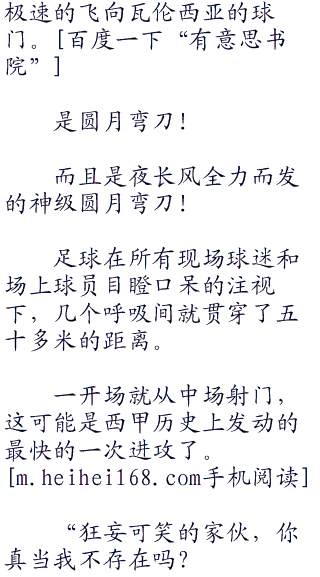 极速的飞向瓦伦西亚的球
门。[百度一下“有意思书
院”]
是圆月弯刀！
而且是夜长风全力而发
的神级圆月弯刀！
足球在所有现场球迷和
场上球员目瞪口呆的注视
下，几个呼吸间就贯穿了五
十多米的距离。
一开场就从中场射门，
这可能是西甲历史上发动的
最快的一次进攻了。
[m.heihei168.com手机阅读]
“狂妄可笑的家伙，你
真当我不存在吗？